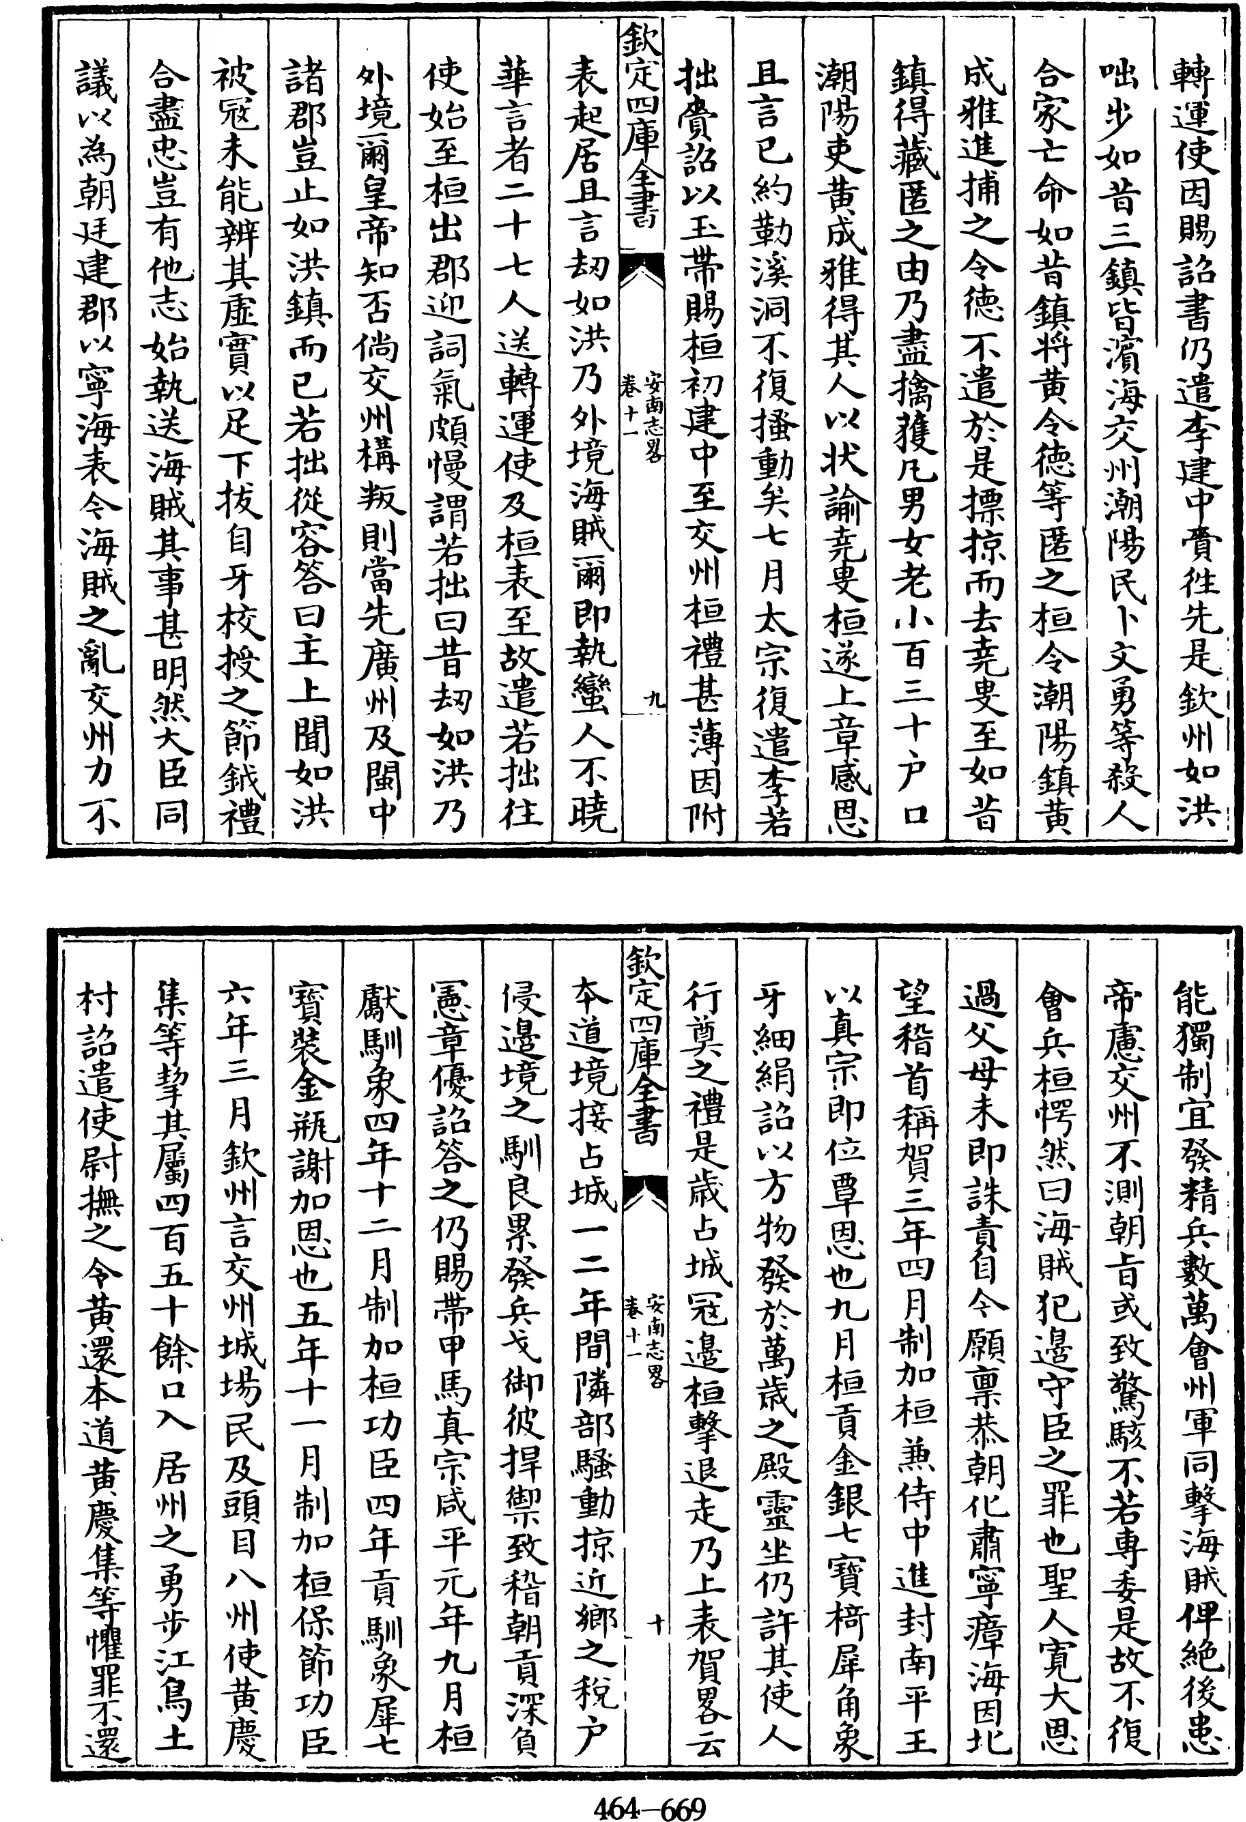 轉運使因賜詔書仍遣李建中賫徃先是欽州如洪
咄步如昔三鎮皆濱海交州潮陽民卜文勇等殺人
合家亡命如昔鎮将黄令徳等匿之桓令潮陽鎮黄
成雅進捕之令徳不遣於是摽掠而去堯叟至如昔
鎮得藏匿之由乃盡擒獲凡男女老小百三十户口
潮陽吏黄成雅得其人以状諭堯叟桓遂上章感恩
且言已約勒溪洞不復搔動矣七月太宗復遣李若
拙賫詔以玉帶賜桓初建中至交州桓禮甚薄因附
欽定四庫全書
安南志畧
卷十一
九
表起居且言刼如洪乃外境海賊爾即執蠻人不曉
華言者二十七人送轉運使及桓表至故遣若拙往
使始至桓出郡迎詞氣頗慢謂若拙曰昔刼如洪乃
外境爾皇帝知否倘交州構叛則當先廣州及閩中
諸郡豈止如洪鎮而已若拙從容答曰主上聞如洪
被冦未能辨其虛實以足下拔自牙校授之節鉞禮
合盡忠豈有他志始執送海賊其事甚明然大臣同
議以為朝廷建郡以寧海表令海賊之亂交州力不
能獨制宜發精兵數萬會州軍同擊海賊俾絶後患
帝慮交州不測朝旨或致驚駭不若專委是故不復
會兵桓愕然曰海賊犯邉守臣之罪也聖人寛大恩
過父母未即誅責自今願禀恭朝化肅寧瘴海因北
望稽首稱賀三年四月制加桓兼侍中進封南平王
以真宗即位覃恩也九月桓貢金銀七寶椅犀角象
牙細絹詔以方物發於萬歳之殿靈坐仍許其使人
行奠之禮是歳占城冦邉桓擊退走乃上表賀畧云
欽定四庫全書
安南志畧
卷十一
十
夲道境接占城一二年間隣部騷動掠近鄉之税户
侵邉境之馴良累發兵戈御彼捍禦致稽朝貢深負
憲章優詔答之仍賜帶甲馬真宗咸平元年九月桓
獻馴象四年十二月制加桓功臣四年貢馴象犀七
寳裝金瓶謝加恩也五年十一月制加桓保節功臣
六年三月欽州言交州城場民及頭目八州使黄慶
集等挈其屬四百五十餘口入居州之勇步江鳥土
村詔遣使尉撫之令黄還本道黄慶集等懼罪不還
464-669